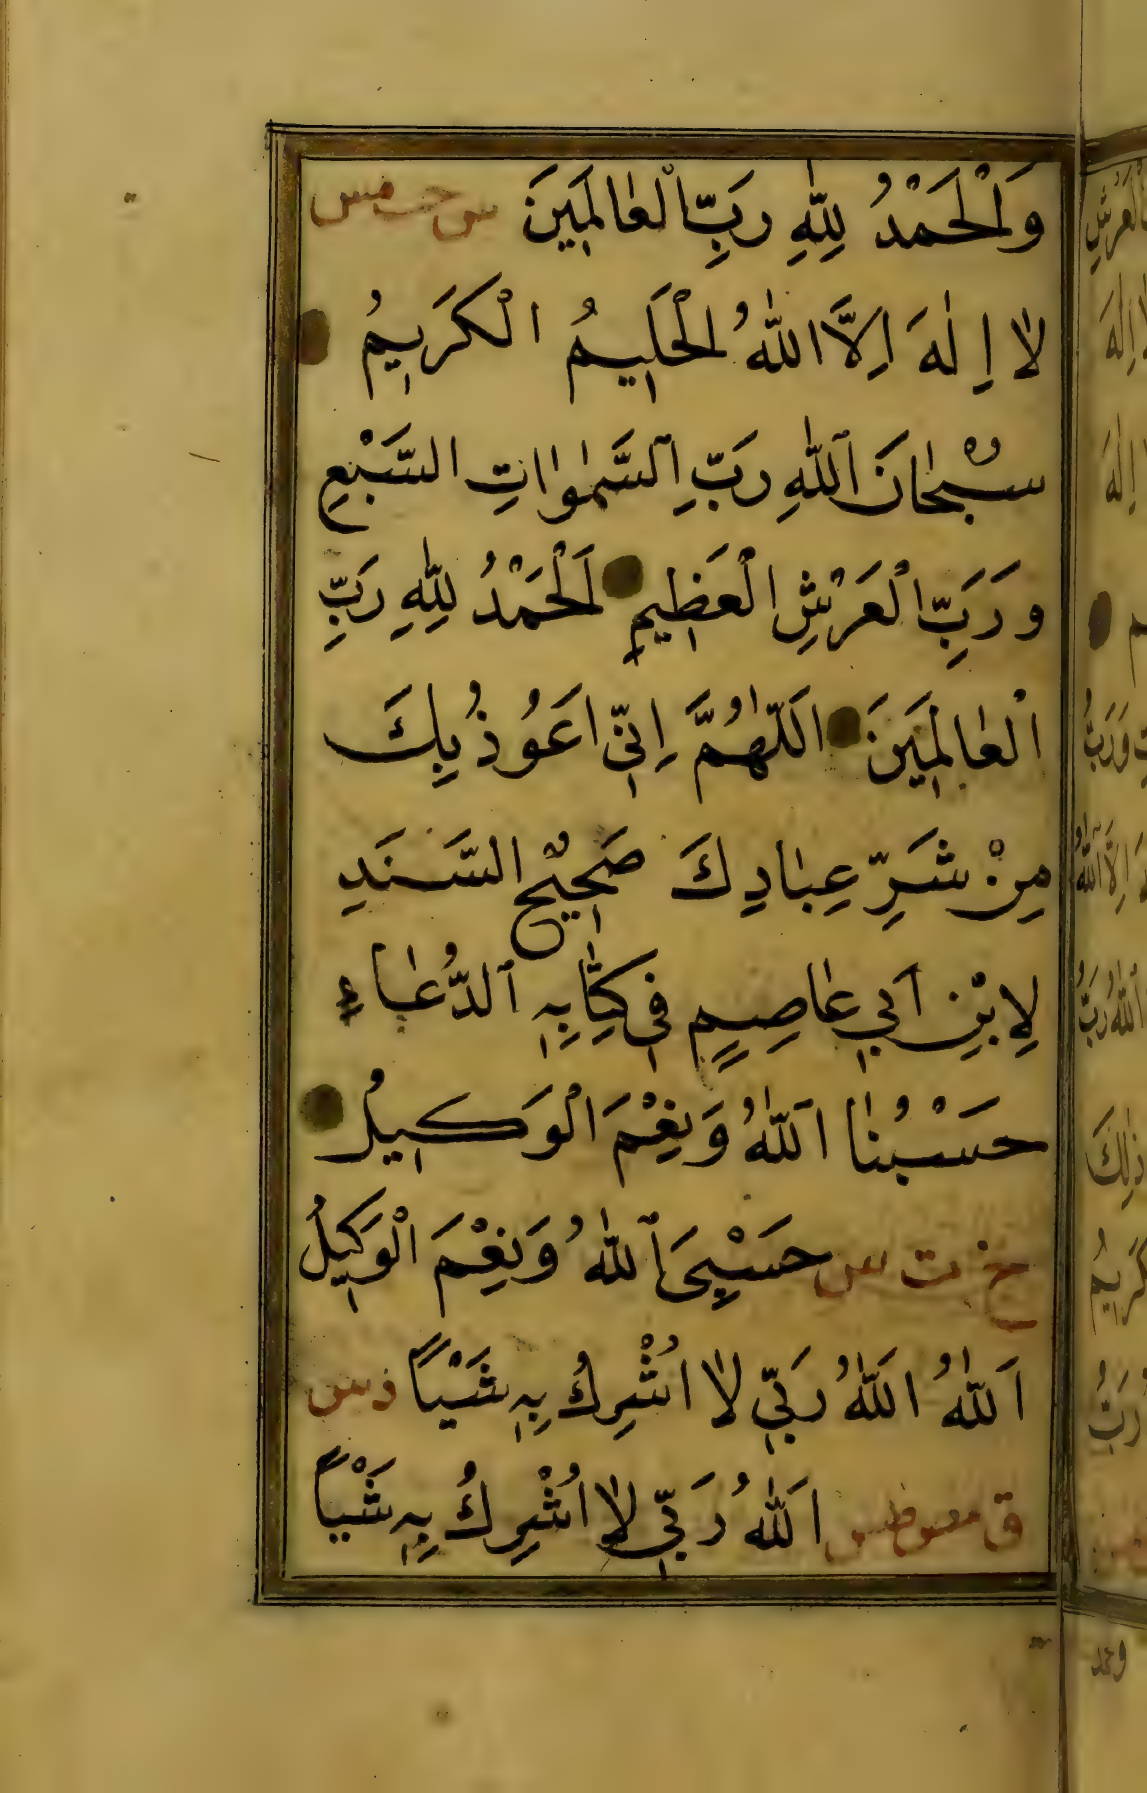 وَالْحَمْدُ لِلّٰهِ رَبِّ الْعَالَمِينَ س حب مس
لَا إِلٰهَ اِلَّا اللّٰهُ الْحَلِيمُ الْكَرِيمُ
سُبْحَانَ اللّٰهِ رَبِّ السَّمٰوَاتِ السَّبْعِ
وَرَبِّ الْعَرْشِ الْعَظِيمِ اَلْحَمْدُ لِلّٰهِ رَبِّ
الْعَالَمِينَ اَللّٰهُمَّ اِنِّي اَعُوذُ بِكَ
مِنْ شَرِّ عِبَادِكَ صَحِيْحُ السَّنَدِ
لِابْنِ اَبِي عَاصِمٍ فِي كِتَابِهِ الدُّعَاءِ
حَسْبُنَا اَللّٰهُ وَنِعْمَ الْوَكِيلُ
خ ت س حَسْبِيَ اللّٰهُ وَنِعْمَ الْوَكِيلُ
اَللّٰهُ اَللّٰهُ رَبِّي لَا اُشْرِكُ بِهِ شَيْـًٔا د س
ق مص طس اَللّٰهُ رَبِّي لَا اُشْرِكُ بِهِ شَيْـًٔا